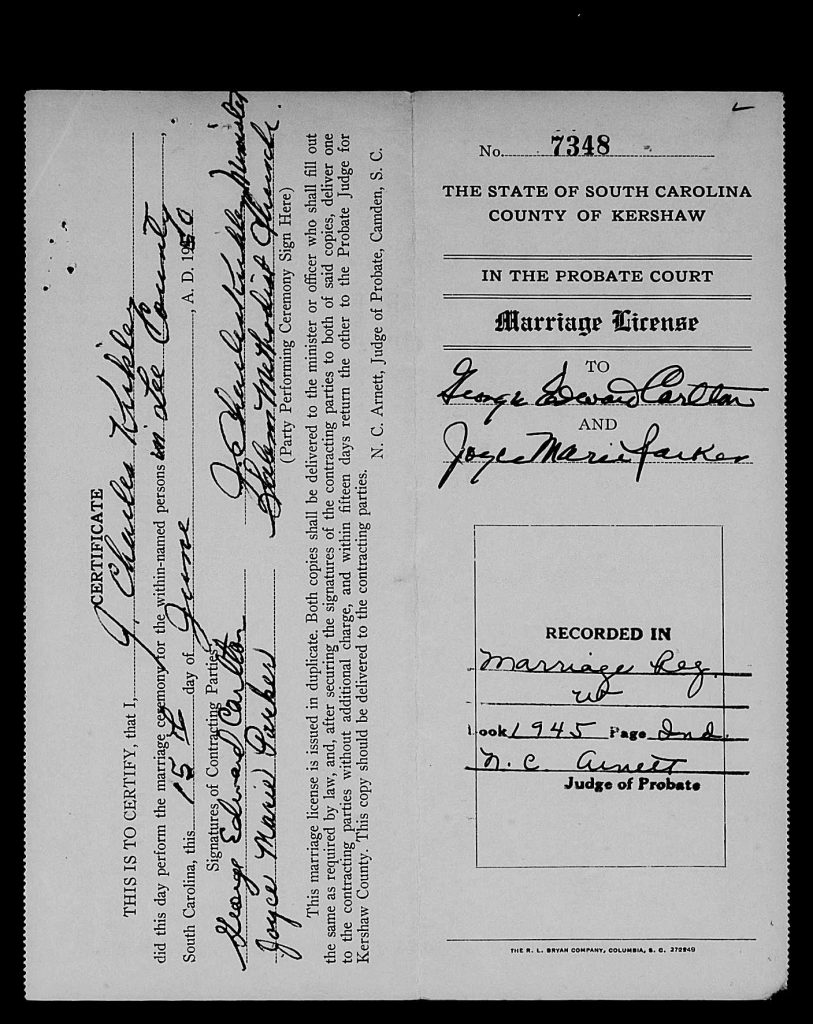 CERTIFICATE
THIS IS TO CERTIFY, that I, J. Charles Kirkley
did this day perform the marriage ceremony for the within-named persons in Lee County,
South Carolina, this 15th day of June, A. D. 19
Signatures of Contracting Parties
George Edward Carlton
Joyce Marie Parker
J. Charles Kirkley, Minister
Salem Methodist Church.
(Party Performing Ceremony Sign Here)
This marriage license is issued in duplicate. Both copies shall be delivered to the minister or officer who shall fill out
the same as required by law, and, after securing the signatures of the contracting parties to both of said copies, deliver one
to the contracting parties without additional charge, and within fifteen days return the other to the Probate Judge for
Kershaw County. This copy should be delivered to the contracting parties.
N. C. Arnett, Judge of Probate, Camden, S. C.
No. 7348
THE STATE OF SOUTH CAROLINA
COUNTY OF KERSHAW
IN THE PROBATE COURT
Marriage License
TO
George Edward Carlton
AND
Joyce Marie Parker
RECORDED IN
Marriage Reg.
ook 1945 Page Ind.
N. C. Arnett
Judge of Probate
THE R. L. BRYAN COMPANY, COLUMBIA, S. C. 272949